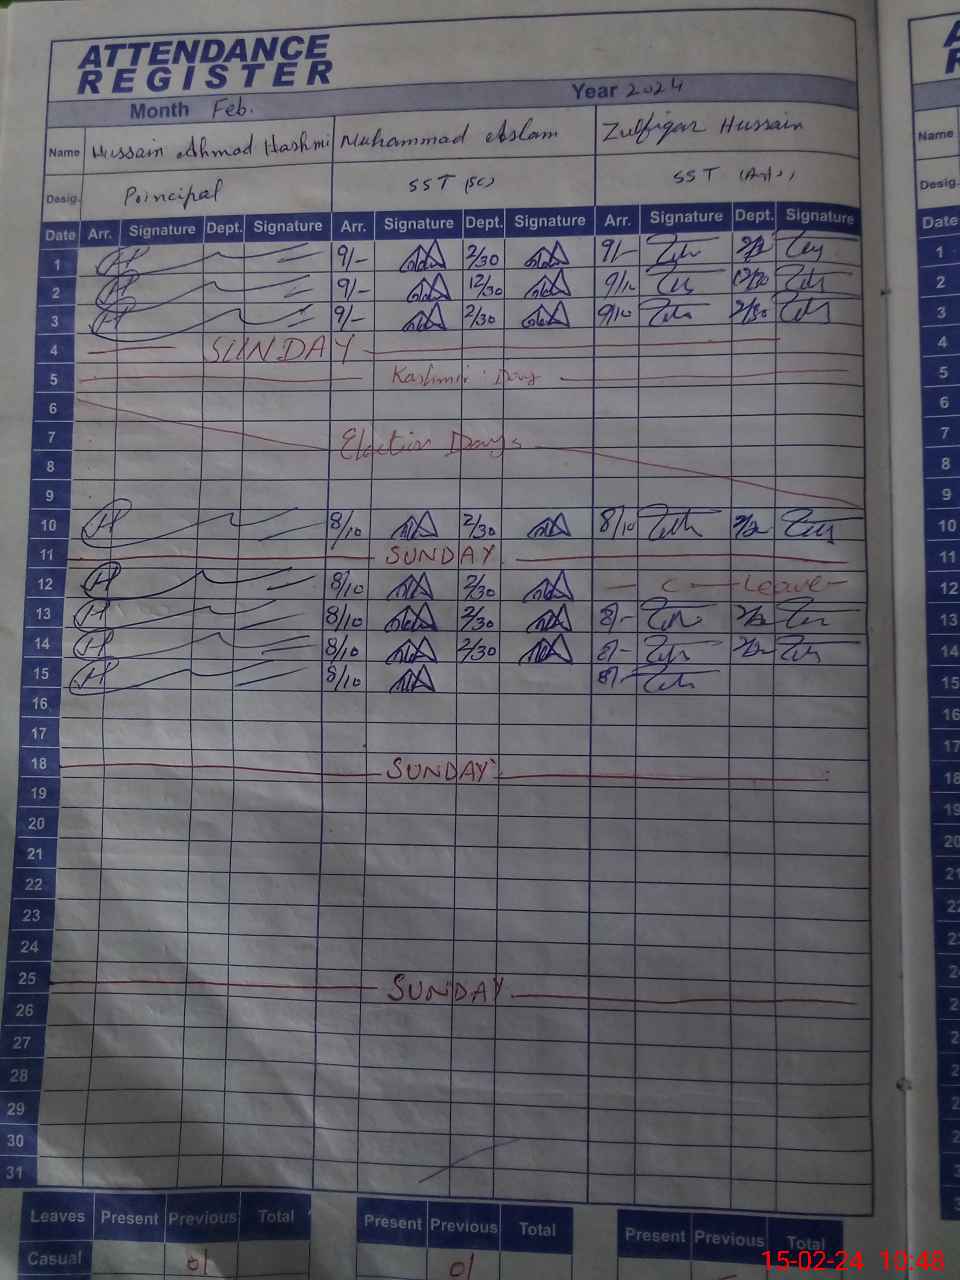 ATTENDANCE
REGISTER
Month Feb. Year 2024
Name Hussain Ahmad Hashmi Muhammad Aslam Zulfiqar Hussain Name
Desig. Principal SST (Sc) SST (Arts) Desig.
Date Arr. Signature Dept. Signature Arr. Signature Dept. Signature Arr. Signature Dept. Signature Date
1 9/- 2/30 9/- 1
2 9/- 12/30 9/10 2
3 9/- 2/30 9/10 2/30 3
4 SUNDAY 4
5 Kashmir Day 5
6 6
7 Election Days 7
8 8
9 9
10 8/10 2/30 8/10 10
11 SUNDAY 11
12 8/10 2/30 C - Leave 12
13 8/10 2/30 8/- 13
14 8/10 2/30 8/- 14
15 8/10 8/- 15
16 16
17 17
18 SUNDAY 18
19 19
20 20
21 21
22 22
23
24
25 SUNDAY
26
27
28
29
30
31
Leaves Present Previous Total Present Previous Total Present Previous Total
Casual 01 01
15-02-24 10:48